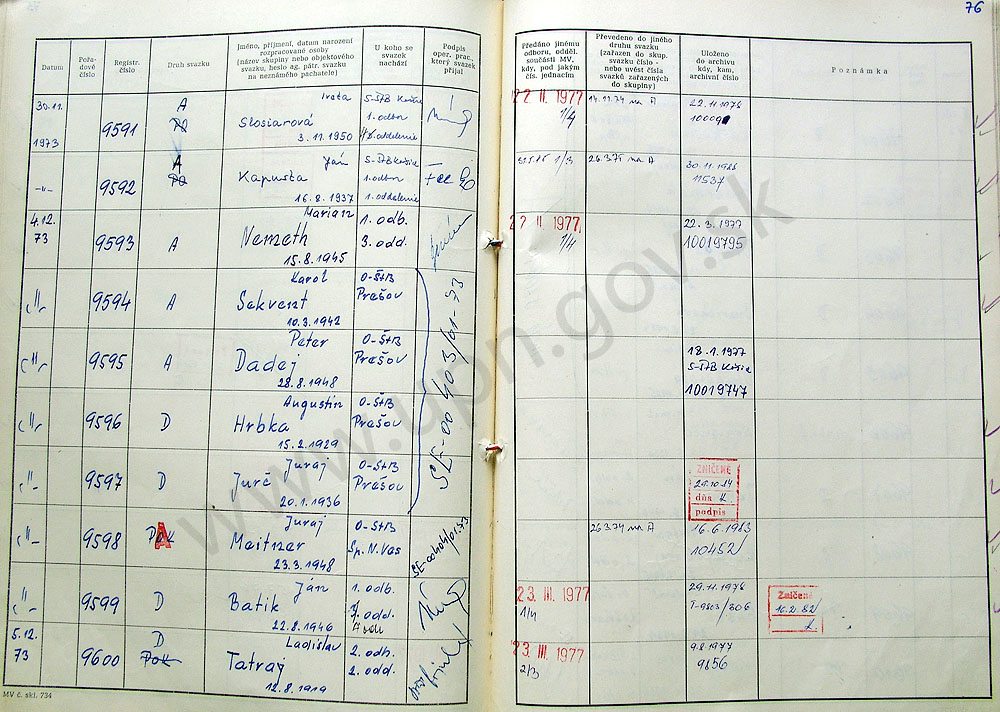 76
Datum
Pořadové číslo
Registr. číslo
Druh svazku
Jméno, příjmení, datum narození
rozpracované osoby
(název skupiny nebo objektového
svazku, heslo ag. pátr. svazku
na neznámého pachatele)
U koho se
svazek
nachází
Podpis
oper. prac.,
který svazek
přijal
Předáno jinému
odboru, odděl.
součásti MV,
kdy, pod jakým
čís. jednacím
Převedeno do jiného
druhu svazku
(zařazen do skup.
svazku číslo -
nebo uvést čísla
svazků zařazených
do skupiny)
Uloženo
do archivu
kdy, kam,
archivní číslo
Poznámka
30.11.
1973
9591
A
Iveta
Slosiarová
3.11.1950
1. odbor
22 II. 1977
1/4
A
22.11.1976
9592
A
Ján
Kapusta
16.8.1937
1. odbor
1. oddelenie
1/3
26.3.75 na A
30.11.1976
11537
4.12.
73
9593
A
Marian
Nemeth
15.8.1945
1. odb.
3. odd.
22 II. 1977
1/4
22.3.1977
10019795
9594
A
Karol
Sekvent
10.3.1942
O-ŠtB
Prešov
9595
A
Peter
Dadej
28.8.1948
O-ŠtB
Prešov
18.1.1977
10019747
9596
D
Augustín
Hrbka
15.2.1929
O-ŠtB
Prešov
9597
D
Juraj
Jurč
20.1.1936
O-ŠtB
Prešov
ZNIČENÉ
dňa
podpis
SE-00403/01-73
9598
A
Juraj
Meitner
23.3.1948
O-ŠtB
Sp. N. Ves
SE-00404/01-73
26.3.74 na A
16.6.1983
10452
9599
D
Ján
Batik
22.8.1946
1. odb.
odd.
23. III. 1977
1/4
29.11.1976
T-9803/306
Zničené
10.2.82
5.12.
73
9600
D
PoK
Ladislav
Tatraý
12.8.1919
2. odb.
2. odd.
23. III. 1977
2/3
9.8.1977
9856
MV č. skl. 734
www.upn.gov.sk